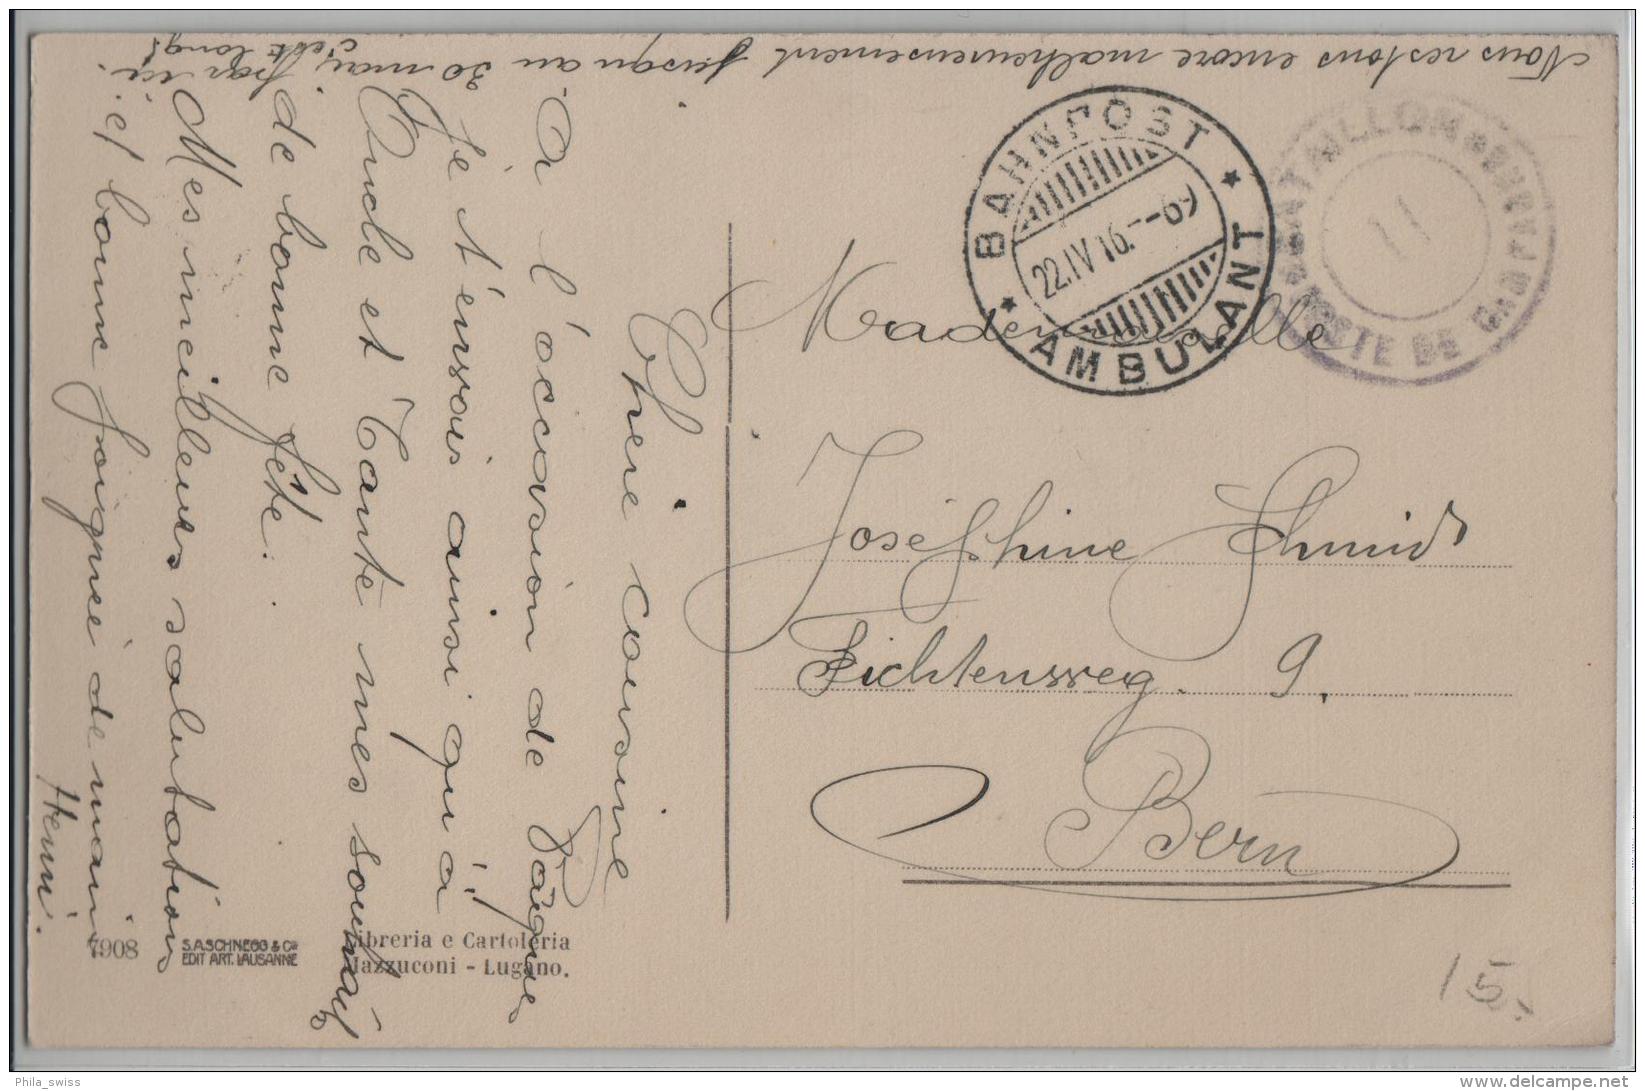 Nous restons encore malheureusement jusqu'au 30 mai, par ici.
c'est long!
Chère cousine
A l'occasion de Pâques
je t'envois ainsi qu'a
Oncle et Tante mes souhaits
de bonne fête.
Mes meilleures salutations
et bonne poignée de main
Henri.
BAHNPOST
22.IV 16.-69
AMBULANT
BATAILLON
POSTE DE CAMPAGNE
Mademoiselle
Joséphine Schmid
Fichtenweg. 9.
Bern
7908
S.A. SCHNEGG & Cie
EDIT ART. LAUSANNE
Libreria e Cartoleria
Mazzuconi - Lugano.
15.
Phila_swiss
www.delcampe.net